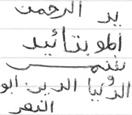 بد الرحمن
المو بتائيد
بنصر
الدنيا الدين أبو
النصر